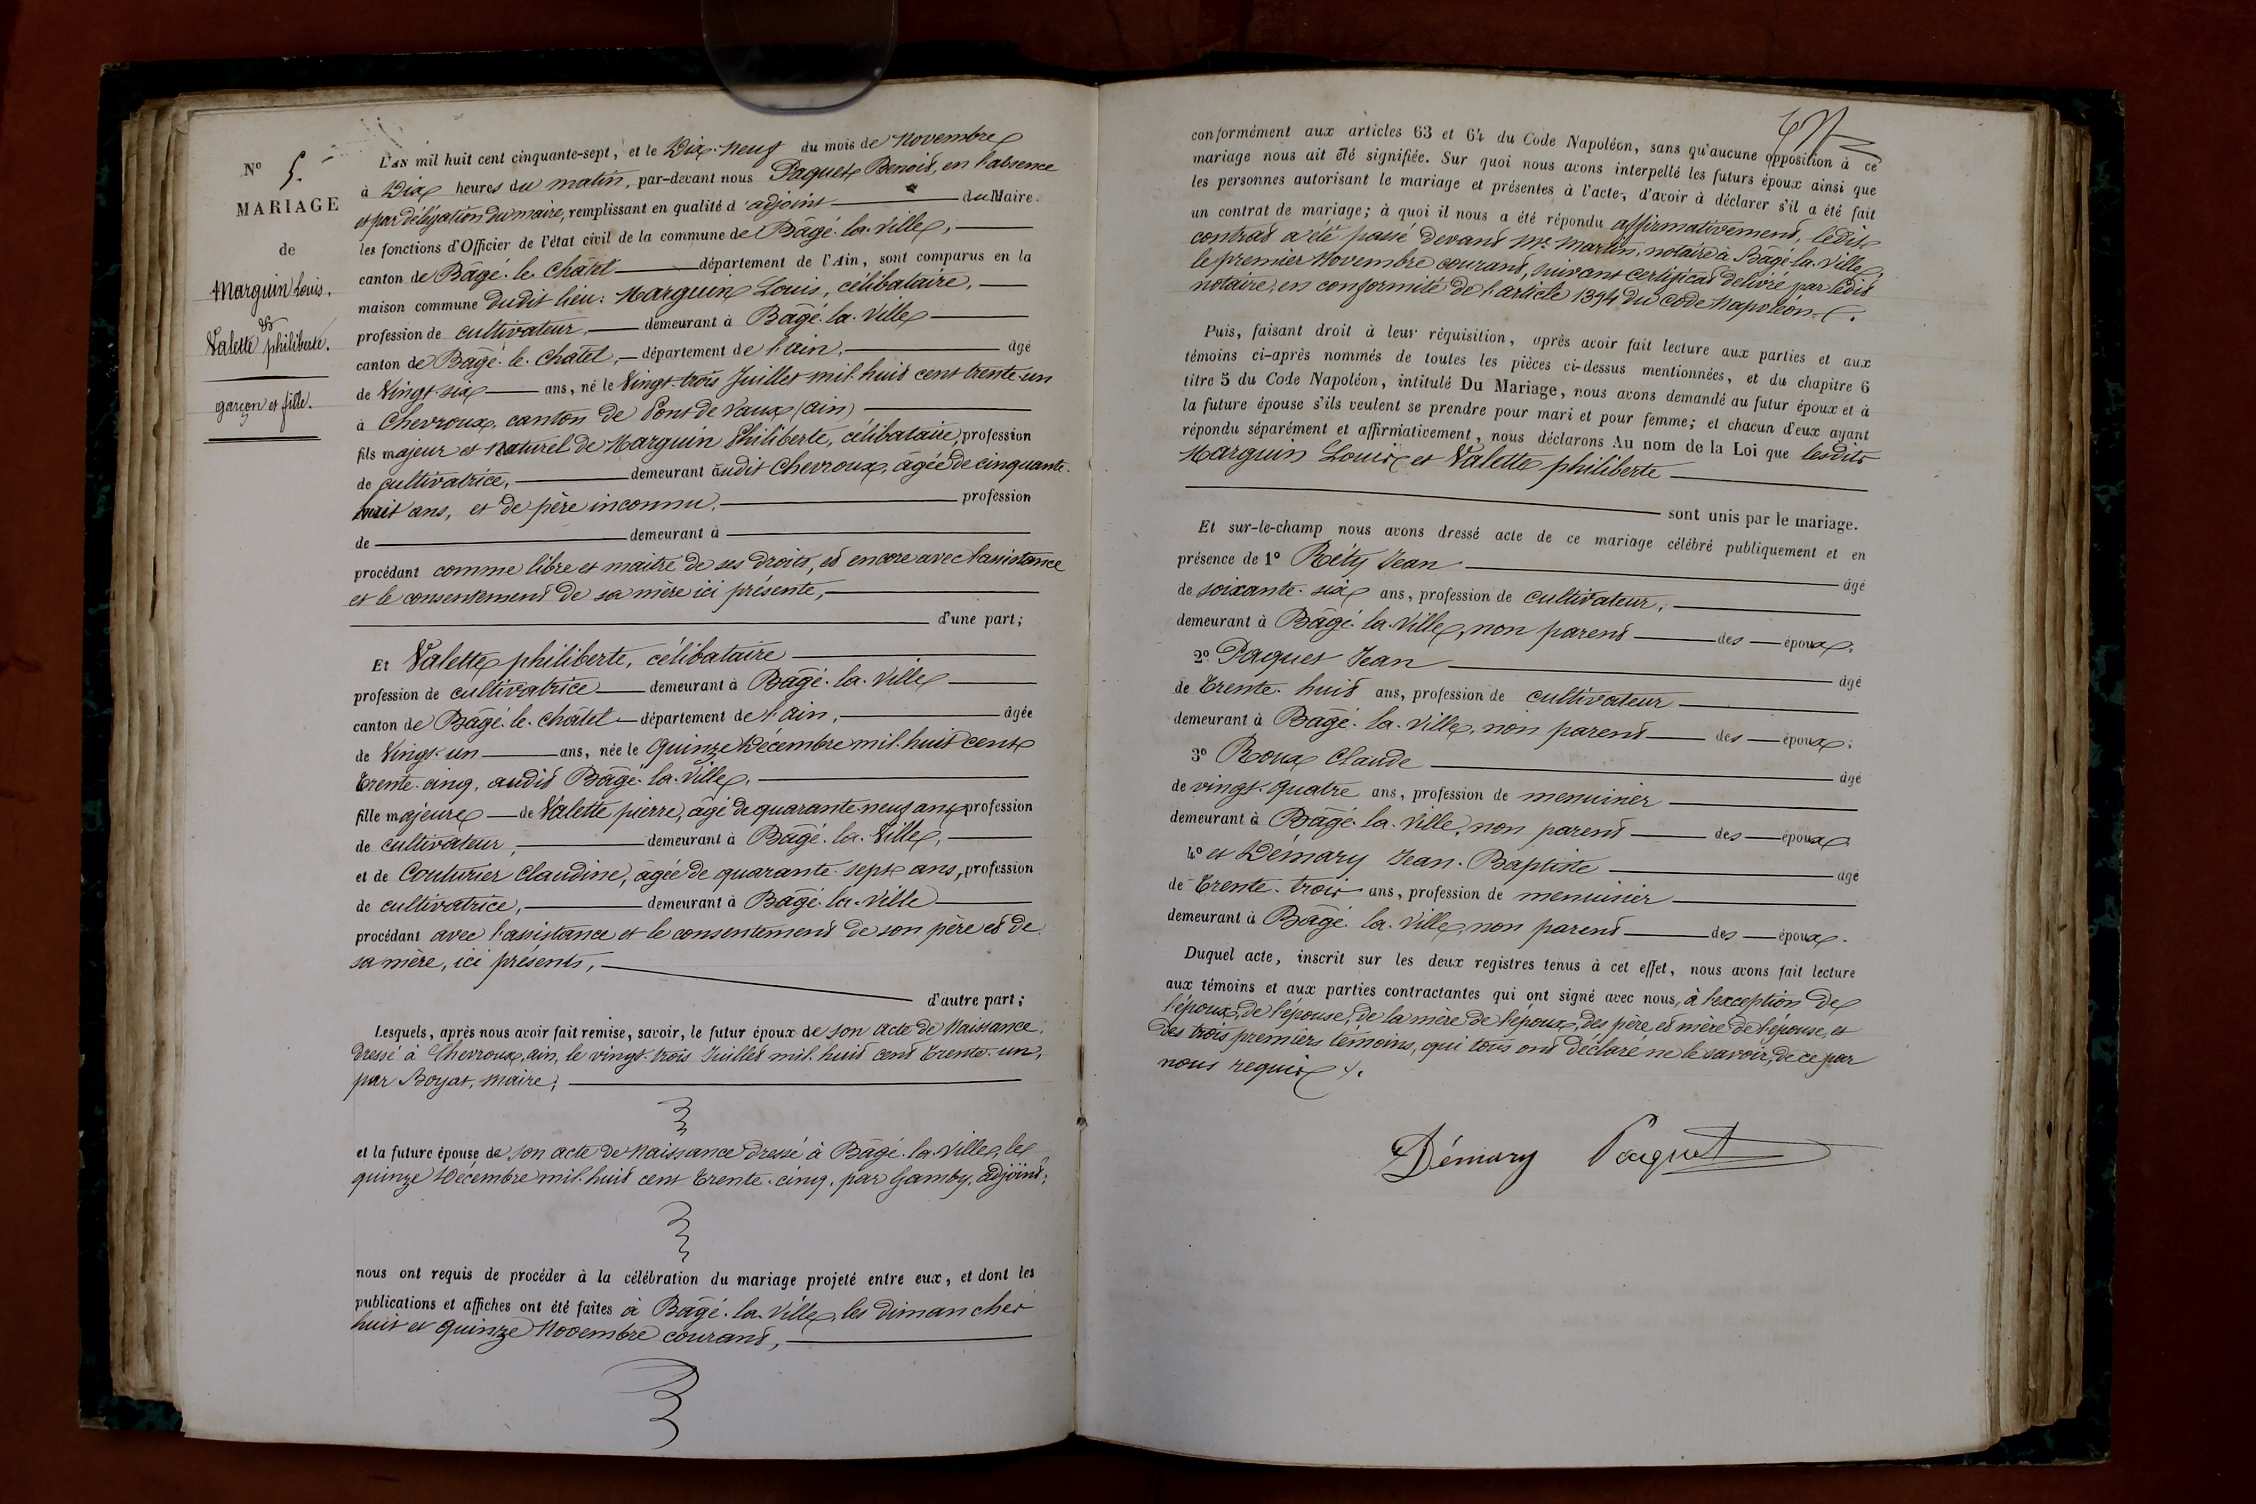 N° 5.
MARIAGE
de
Marguin Louis.
&
Valette philiberte.
garçon et fille.
L'an mil huit cent cinquante-sept, et le Dix-neuf du mois de Novembre
à Dix heures du matin, par-devant nous Paquet Benoit, en l'absence
et par délégation du maire, remplissant en qualité d'adjoint du Maire.
les fonctions d'Officier de l'état civil de la commune de Bâgé-la-Ville,
canton de Bâgé-le-Châtel département de l'Ain, sont comparus en la
maison commune dudit lieu: Marguin Louis, célibataire,
profession de cultivateur, demeurant à Bâgé-la-Ville
canton de Bâgé-le-Chatel, département de l'ain, âgé
de Vingt-six ans, né le Vingt-trois Juillet mil-huit cent trente-un
à Chevroux, canton de Pont-de-Vaux (ain)
fils majeur et naturel de Marguin Philiberte, célibataire, profession
de cultivatrice, demeurant audit Chevroux, âgée de cinquante-
huit ans, et de père inconnu, profession
de demeurant à
procédant comme libre et maitre de ses droits, et encore avec l'assistance
et le consentement de sa mère ici présente,
d'une part;
Et Valette philiberte, célibataire
profession de cultivatrice demeurant à Bâgé-la-Ville
canton de Bâgé-le-châtel département de l'ain, âgée
de Vingt-un ans, née le quinze Décembre mil-huit cent
trente-cinq, audit Bâgé-la-Ville,
fille majeure de Valette pierre, âgé de quarante-neuf ans, profession
de cultivateur, demeurant à Bâgé-la-Ville,
et de Couturier Claudine, âgée de quarante-sept ans, profession
de cultivatrice, demeurant à Bâgé-la-Ville
procédant avec l'assistance et le consentement de son père et de
sa mère, ici présents,
d'autre part;
Lesquels, après nous avoir fait remise, savoir, le futur époux de son acte de Naissance,
dressé à Chevroux, ain, le vingt-trois Juillet mil-huit cent trente-un,
par Boyat, maire;
et la future épouse de son acte de Naissance dressé à Bâgé-la-Ville, le
quinze Décembre mil-huit cent trente-cinq, par Gamby, adjoint;
nous ont requis de procéder à la célébration du mariage projeté entre eux, et dont les
publications et affiches ont été faites à Bâgé-la-Ville, les dimanches
huit et quinze Novembre courant,
conformément aux articles 63 et 64 du Code Napoléon, sans qu'aucune opposition à ce
mariage nous ait été signifiée. Sur quoi nous avons interpellé les futurs époux ainsi que
les personnes autorisant le mariage et présentes à l'acte, d'avoir à déclarer s'il a été fait
un contrat de mariage; à quoi il nous a été répondu affirmativement, ledit
contrat a été passé devant Me Martin, notaire à Bâgé-la-Ville,
le premier Novembre courant, suivant certificat délivré par ledit
notaire, en conformité de l'article 1394 du Code Napoléon.
Puis, faisant droit à leur réquisition, après avoir fait lecture aux parties et aux
témoins ci-après nommés de toutes les pièces ci-dessus mentionnées, et du chapitre 6
titre 5 du Code Napoléon, intitulé Du Mariage, nous avons demandé au futur époux et à
la future épouse s'ils veulent se prendre pour mari et pour femme; et chacun d'eux ayant
répondu séparément et affirmativement, nous déclarons Au nom de la Loi que lesdits
Marguin Louis et Valette philiberte
sont unis par le mariage.
Et sur-le-champ nous avons dressé acte de ce mariage célébré publiquement et en
présence de 1° Réty Jean âgé
de soixante-six ans, profession de cultivateur,
demeurant à Bâgé-la-Ville, non parent des époux;
2° Paquet Jean âgé
de trente-huit ans, profession de cultivateur
demeurant à Bâgé-la-Ville, non parent des époux;
3° Roux Claude âgé
de vingt-quatre ans, profession de menuisier
demeurant à Bâgé-la-Ville, non parent des époux
4° et Démary Jean-Baptiste âgé
de trente-trois ans, profession de menuisier
demeurant à Bâgé-la-Ville, non parent des époux.
Duquel acte, inscrit sur les deux registres tenus à cet effet, nous avons fait lecture
aux témoins et aux parties contractantes qui ont signé avec nous, à l'exception de
l'époux, de l'épouse, de la mère de l'époux, des père et mère de l'épouse, et
des trois premiers témoins, qui tous ont déclaré ne le savoir, de ce par
nous requis.
Démary Paquet